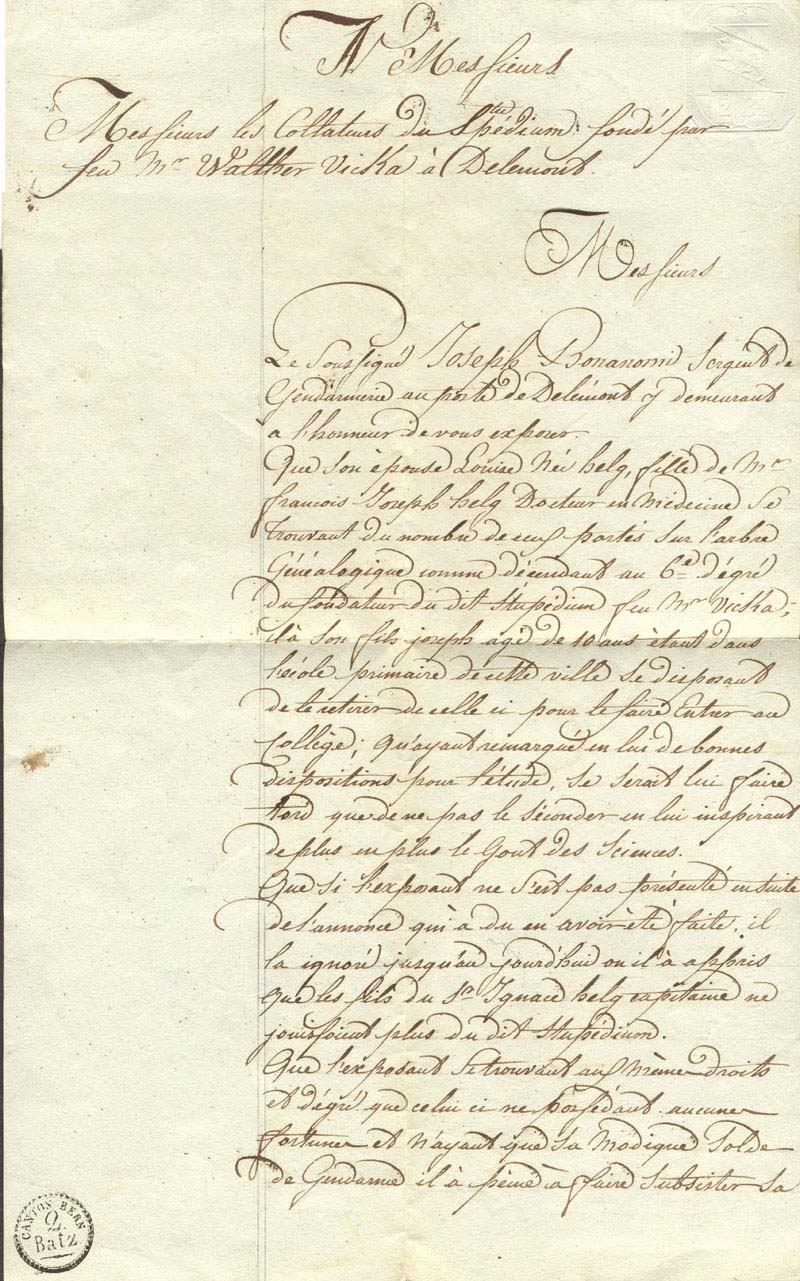 A Messieurs
Messieurs les Collateurs du Stupédium fondé par
feu Mr Walther Vicka à Delemont.
Messieurs
Le Soussigné Joseph Bonanomi Sergent de
Gendarmerie au poste de Delémont y demeurant
a l'honneur de vous exposer.
Que son épouse Louise Née helg, fille de Mr
francois Joseph helg Docteur en Médecine se
trouvant du nombre de ceux portés sur l'arbre
Généalogique comme décendant au 6e dégré
du fondateur du dit Stupédium feu Mr Vicka,
il à son fils joseph agé de 10 ans ètant dans
l'école primaire de cette ville se disposant
de le retirer de celle ci pour le faire Entrer au
Collège; Qu'ayant remarqué en lui de bonnes
dispositions pour l'étude, se serait lui faire
tord que de ne pas le séconder en lui inspirant
de plus en plus le Gout des Sciences.
Que si l'exposant ne s'est pas présenté en suite
de l'annonce qui à du en avoir été faite, il
la ignoré jusqu'au jourd'hui ou il à appris
Que les fils du Sr Ignace helg capitaine ne
jouissoient plus du dit Stupédium.
Que l'exposant se trouvant aux Même droits
et dégré que celui ci ne possédant aucune
fortune et n'ayant que sa Modique Solde
de Gendarme il à peine à faire Subsister sa
CANTON BERN
2
Batz